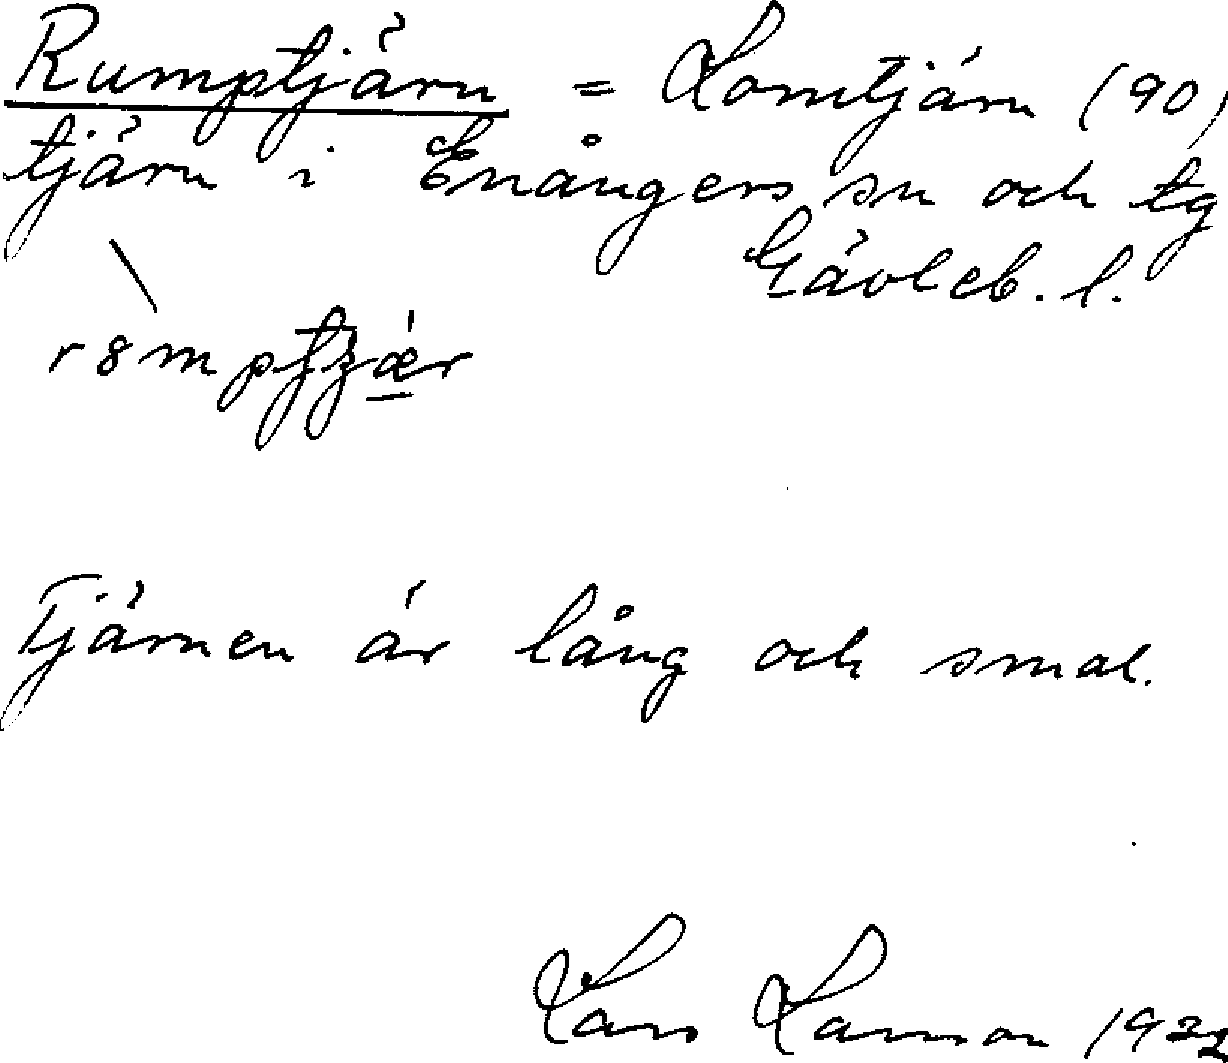 Rumptjärn = Lomtjärn (90)
tjärn i Enångers sn och tg
Gävleb. l.
Tjärnen är lång och smal.
Lars Larsson 1932